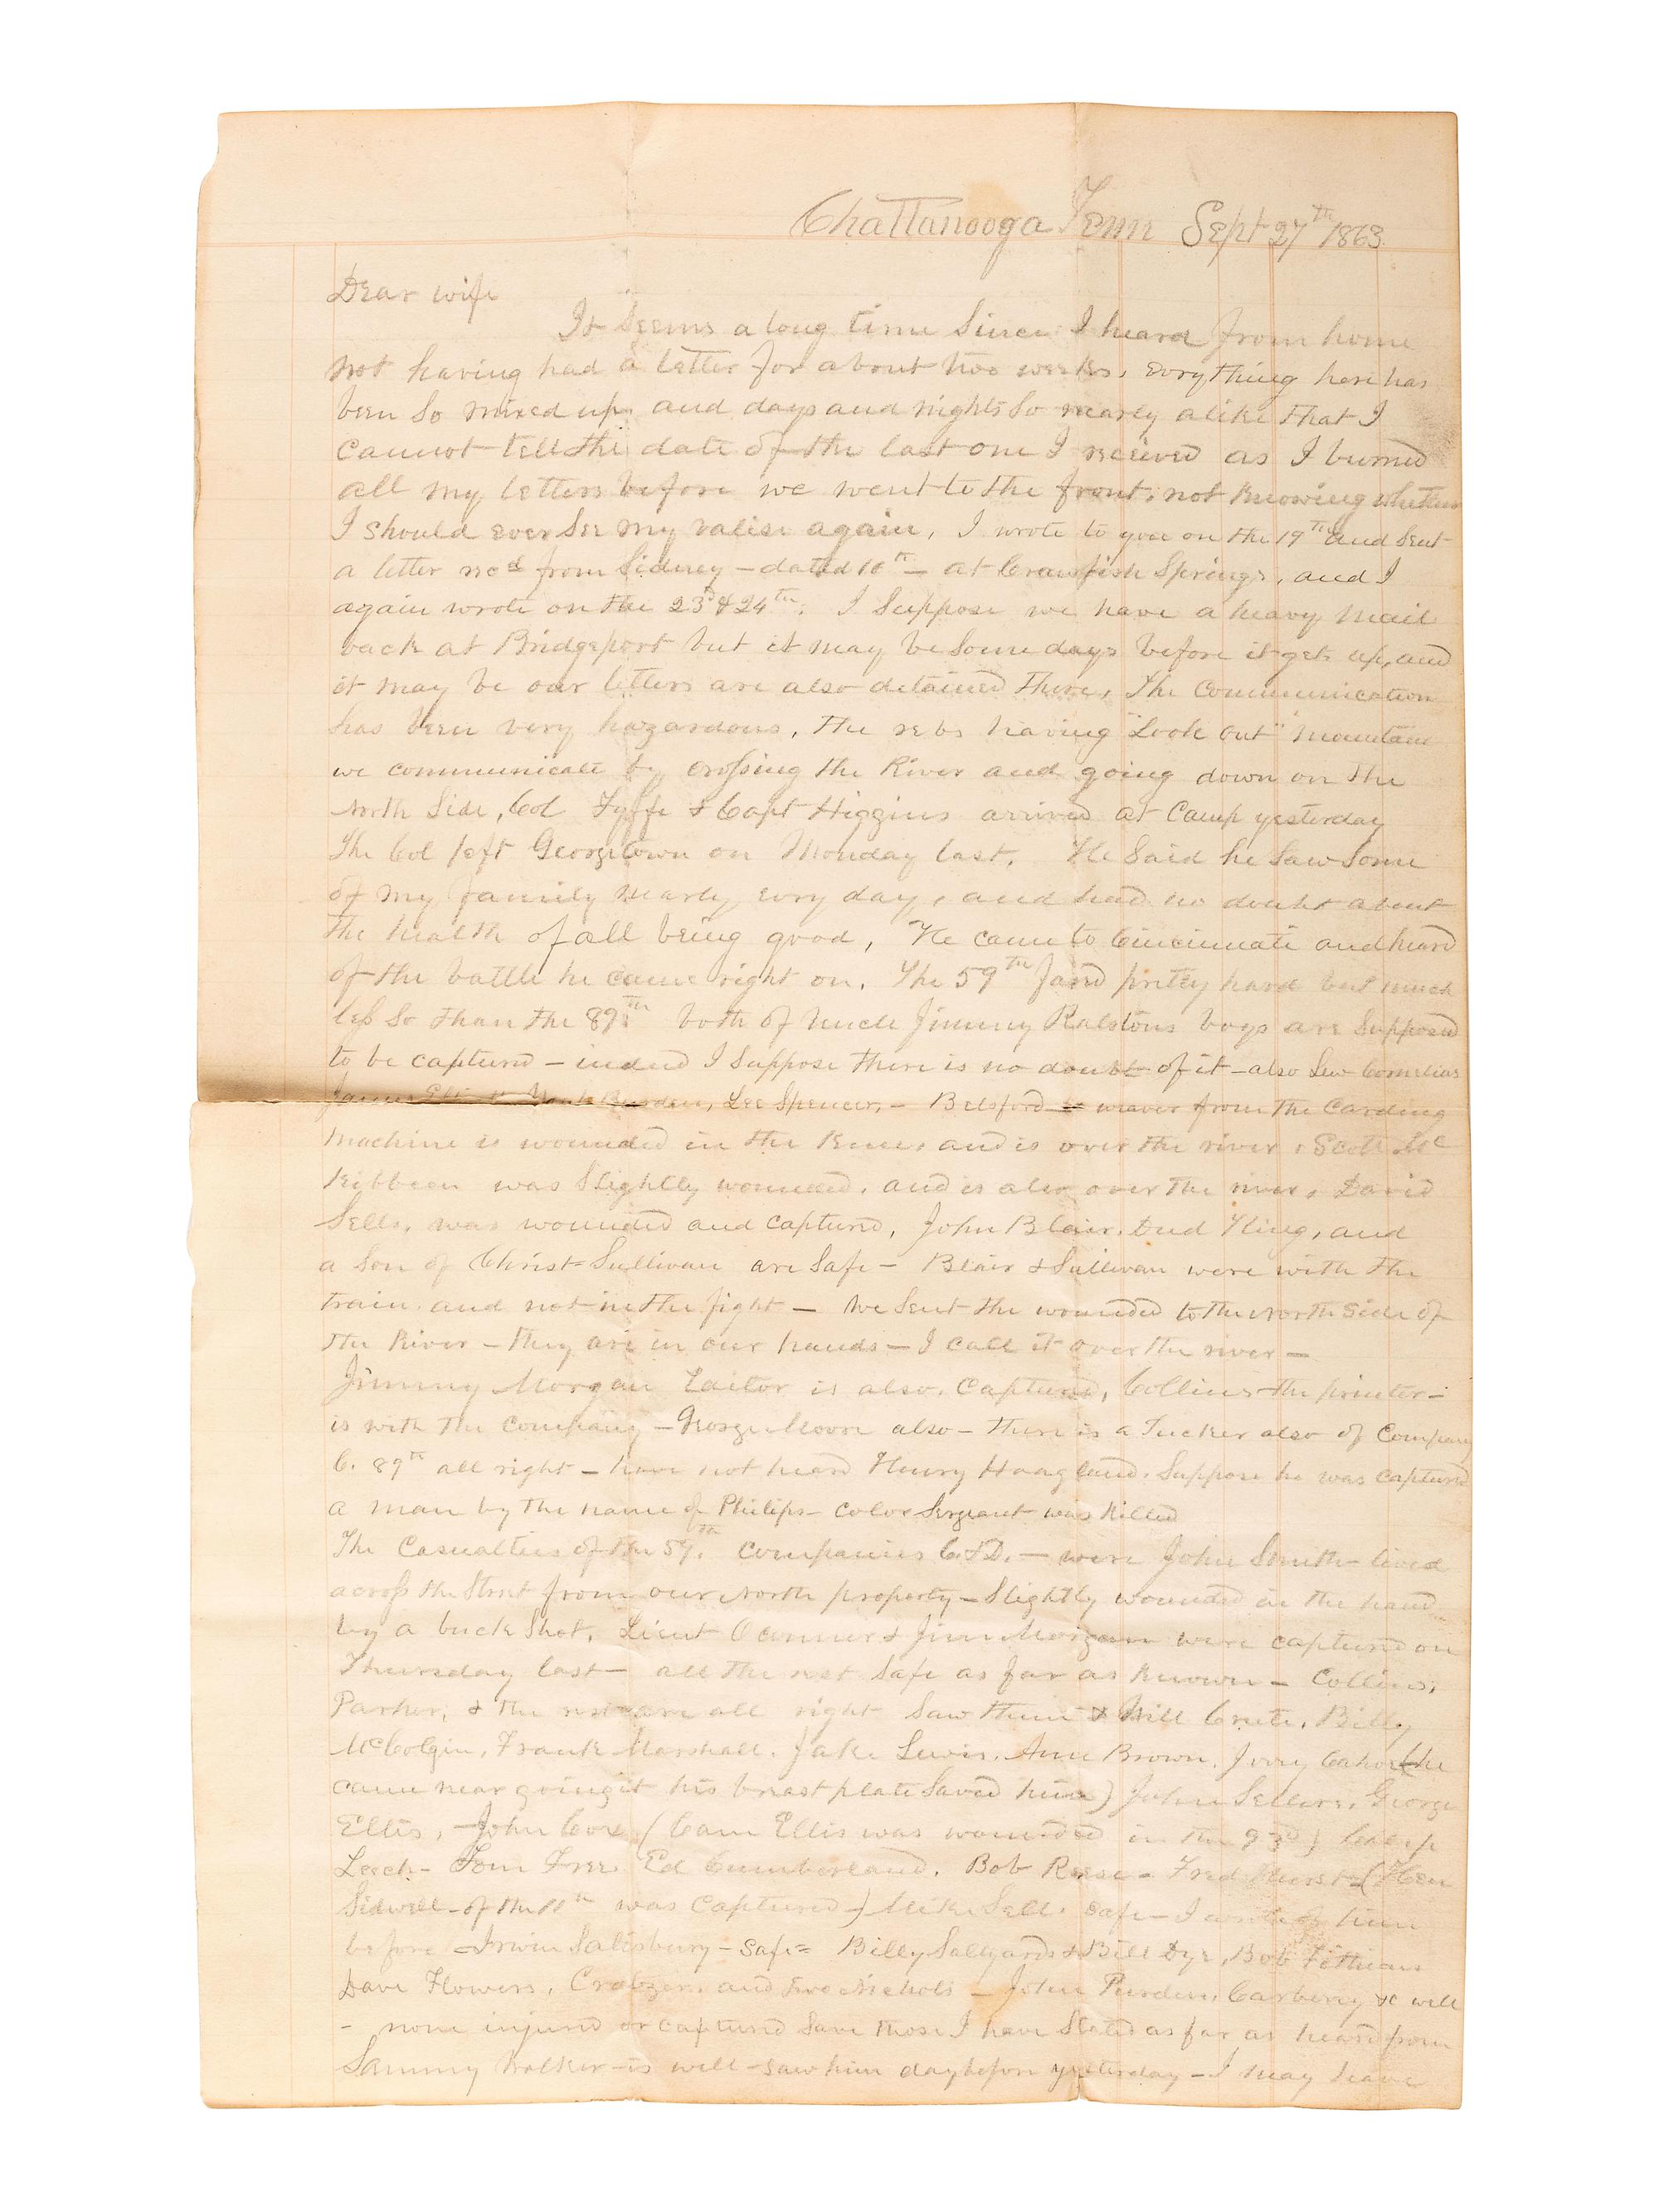 Chattanooga Tenn Sept 27th 1863
Dear wife
It Seems a long time Since I heard from home
not having had a letter for about two weeks, evrything here has
been So mixed up, and days and nights So nearly alike that I
cannot tell the date of the last one I recieved as I burned
all my letters before we went to the front, not knowing whether
I should ever See my valise again, I wrote to you on the 19th and Sent
a letter recd from Sidney – dated 10th – at Crawfish Springs, and I
again wrote on the 23d & 24th. I Suppose we have a heavy mail
back at Bridgeport but it may be Some days before it gets up, and
it may be our letters are also detained there, The Communication
has been very hazardous, the rebs having "Look Out" mountain
we communicate by crossing the River and going down on the
North Side, Col Fyffe & Capt Higgins arrived at Camp yesterday
The Col left Georgetown on Monday last, He Said he Saw Some
of my family nearly evry day, and had no doubt about
the health of all being good, He came to Cincinnati and heard
of the battle he came right on. The 59th fared pretty hard but much
less So than the 89th both of Uncle Jimmy Ralstons boys are Supposed
to be captured – indeed I Suppose there is no doubt of it – also Lew Cornelius
James Burden, Lee Spencer, – Belsford weaver from the Carding
Machine is wounded in the Knee, and is over the river, Scott Mc
Kibbeen was Slightly wounded, and is also over the river, David
Sells, was wounded and captured, John Blair, Dud King, and
a Son of Christ Sullivan are Safe – Blair & Sullivan were with the
train and not in the fight – We Sent the wounded to the North Side of
the River – they are in our hands – I call it over the river –
Jimmy Morgan is also Captured, Collins the printer –
is with the Company – George Moore also – there is a Tucker also of Company
C. 89th all right – have not heard Henry Hoagland, Suppose he was captured
a man by the name of Philips – Color Sergeant was Killed
The Casualties of the 59th Companies C. & D. – were John Smith – lived
across the Street from our North property – Slightly wounded in the hand
by a buck Shot, Lieut Oconner & Jim Morgan were captured on
Thursday last – all the rest Safe as far as known – Collins,
Parker, & the rest are all right Saw them & Will Crute, Billy
McColgin, Frank Marshall, Jake Lewis, Brown, (he
came near going it his breast plate Saved him) John Sellers, George
Ellis, John Cox (Cam Ellis was wounded in the 93d)
Leech – Tom Free, Ed Cumberland, Bob Reese – Fred (Hen
Sidwell – of the 11th was Captured) Mike Sells Safe – I wrote of him
before – Irwin Salisbury – Safe – Billy Sallyards & Bill Dye, Bob Fithian
Dave Flowers, and two Nichols – John Purden, Carberry &c well
– none injured or captured Save those I have Stated as far as heard from
Sammy Walker – is well – Saw him day before yesterday – I may have